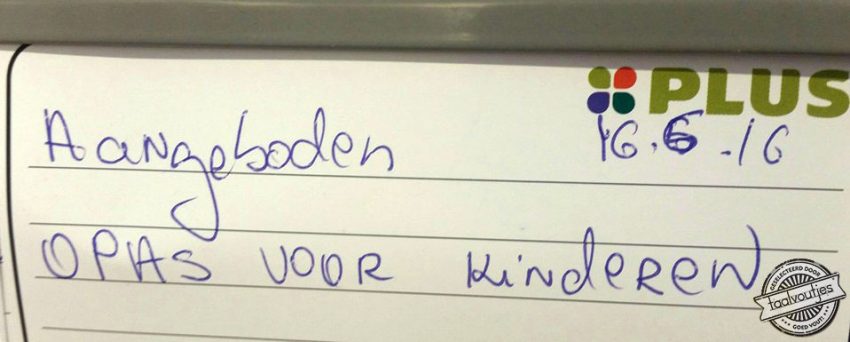 PLUS
Aangeboden
16.6.16
OPAS VOOR KINDEREN
GESELECTEERD DOOR
taalvoutjes
GOED VOUT!